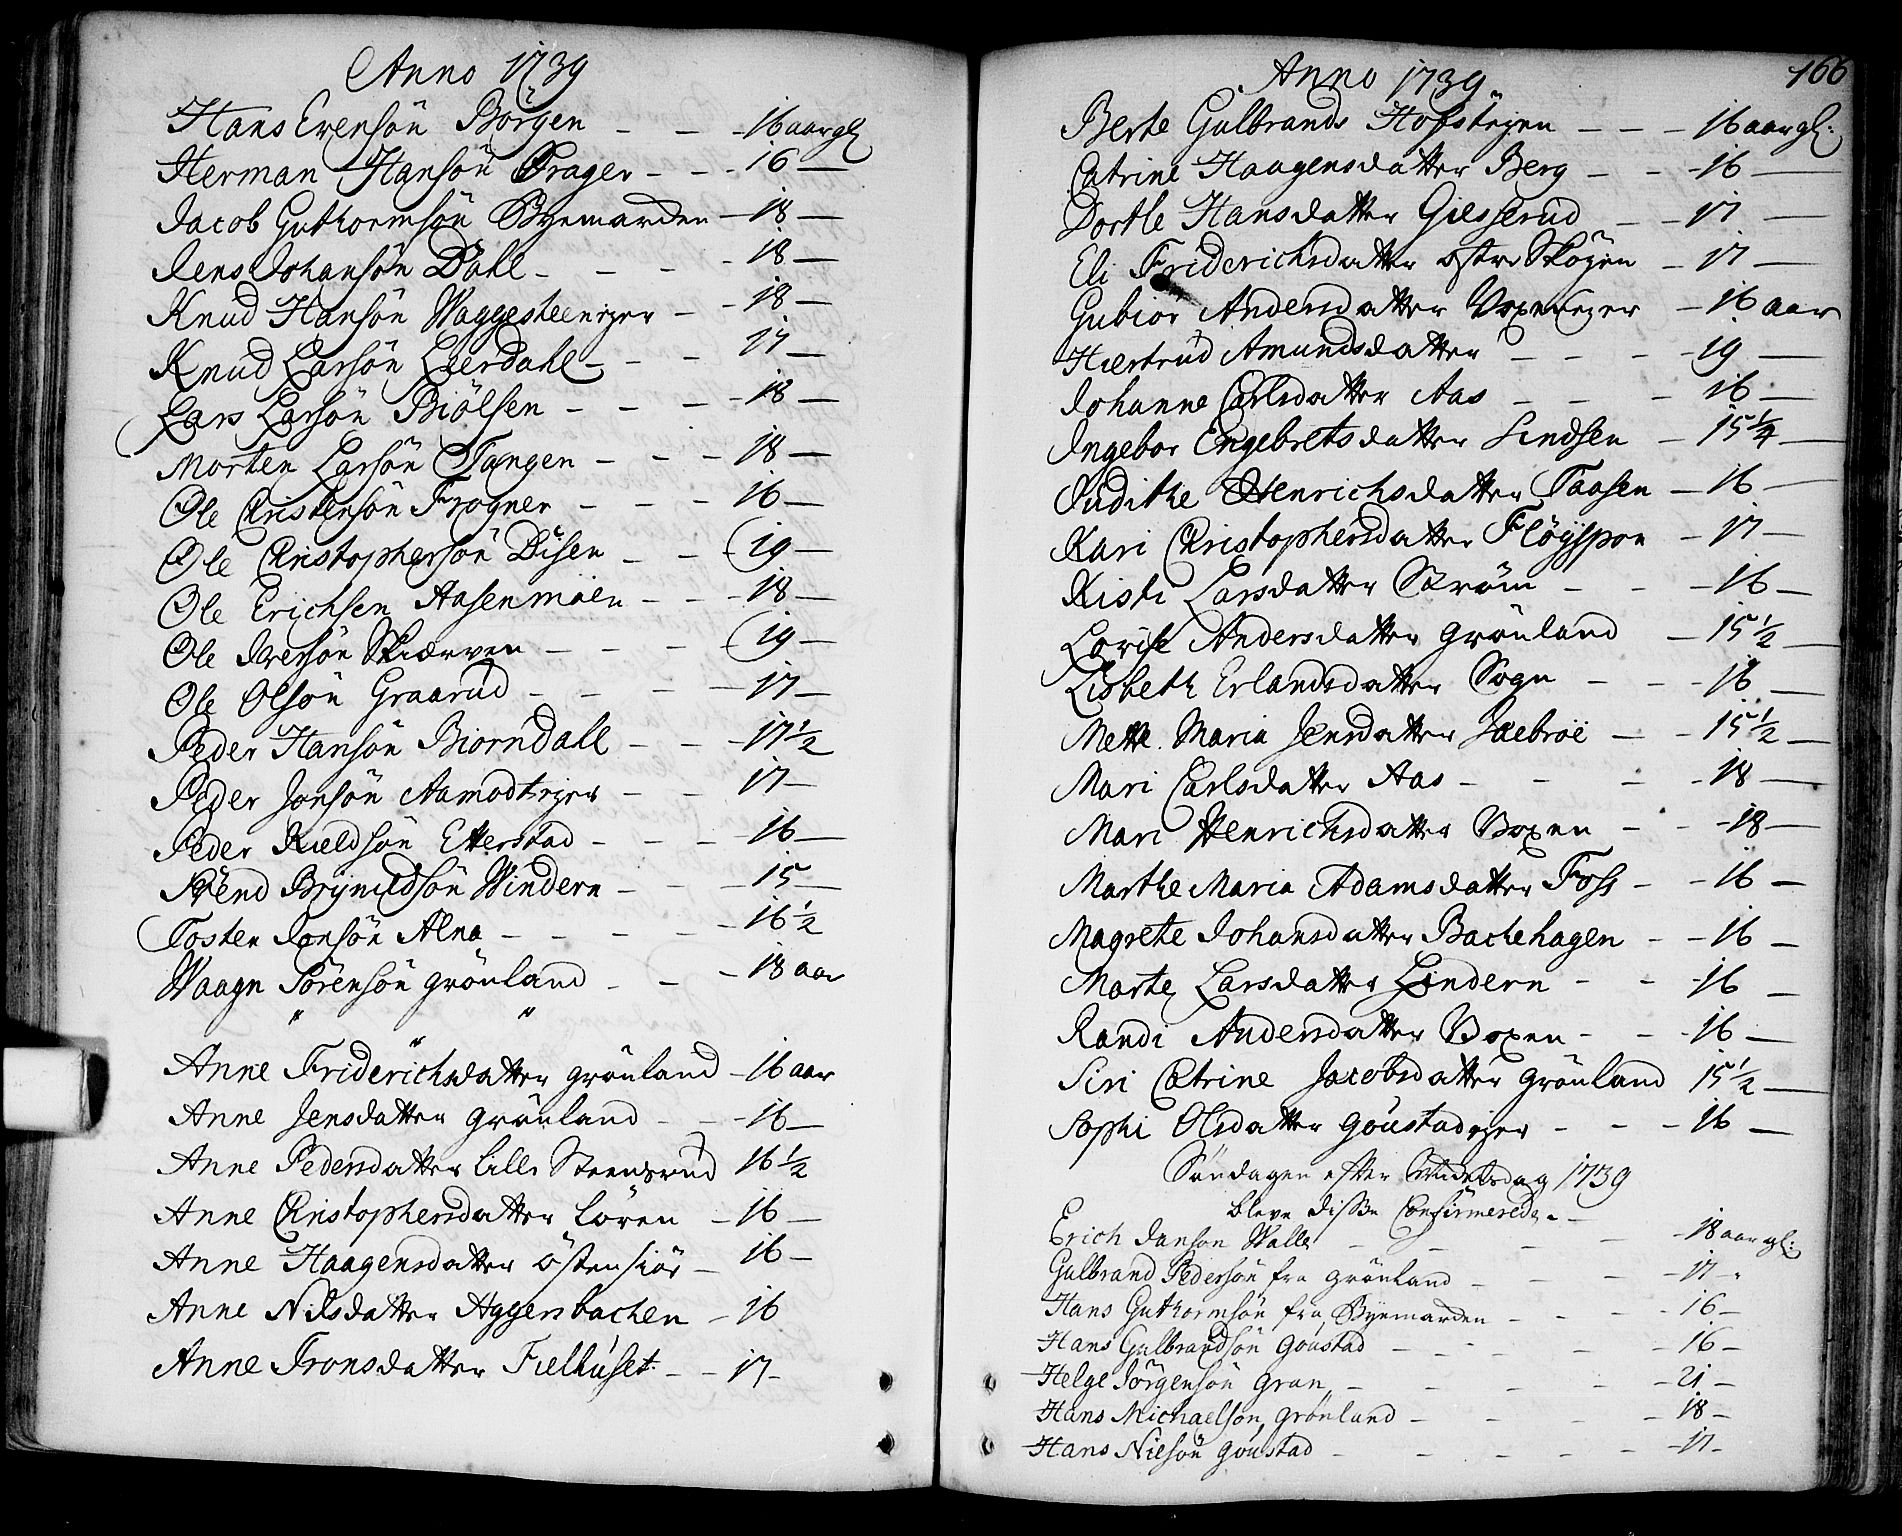 Anno 1739
Hans Evensön Börgen - - - 16 aar gl
Herman Hansön Prager - - - 16 —
Jacob Guthormsön Byemarcken - 18 —
Jens Johansön Dahl - - - 18 —
Knud Hansön Waggesteeneger - - 18 —
Knud Larsön Leerdahl - - - 17 —
Lars Larsön Biölsen - - - 18 —
Morten Larsön Tangen - - - 18 —
Ole Christensön Frogner - - - 16 —
Ole Christophersön Disen - - - 19 —
Ole Erichsen Aasenmöien - - - 18 —
Ole Iversön Skiærven - - - 19 —
Ole Olsön Graarud - - - 17 —
Peder Hansön Biörndall - - - 17 1/2
Peder Jonsön Aamodteger - - 17 —
Peder Kieldsön Etterstad - - - 16 —
Svend Brynildsön Windern - - - 15 —
Tosten Jonsön Alna - - - 16 1/2
Waagn Sörensön Grönland - - - 18 aar
Anne Friderichsdatter Grönland - 16 aar
Anne Jensdatter Grönland - - - 16 —
Anne Pedersdatter Lille Steensrud 16 1/2
Anne Christophersdatter Lören - 16 —
Anne Haagensdatter Östensiör - 16 —
Anne Nilsdatter Aggersbachen - 16
Anne Tronsdatter Fielhuset - - 17 -
166
Anno 1739
Berte Gulbrands Hofsteyen - - - 16 aar gl:
Catrine Haagensdatter Berg - - - 16 —
Dorthe Hansdatter Giesserud - - 17 —
Eli Friderichsdatter Østre Skögen - 17 —
Gubior Andersdatter Voxeneger - 16 aar
Hiertrud Amundsdatter - - - 19 —
Johanne Carlsdatter Aas - - - 16 —
Ingebor Engebretsdatter Lindsen - 15 1/4 —
Judithe Henrichsdatter Taasen - 16 —
Kari Christophersdatter Flöyspon - 17 —
Kisti Larsdatter Ström - - - 16 —
Lovise Andersdatter Grönland - 15 1/2 —
Lisbeth Erlandsdatter Sogn - - - 16 —
Mette Maria Jensdatter Ladebroe - - 15 1/2 —
Mari Carlsdatter Aas - - - 18 —
Mari Henrichsdatter Voxen - - - 18 —
Marthe Maria Adamsdatter Foss - - 16 —
Magrete Johansdatter Bachehagen - - 16 —
Marte Larsdatter Lindern - - - 16 —
Randi Andersdatter Voxen - - - 16 —
Siri Catrine Jacobsdatter Grönland 15 1/2 —
Sophi Olsdatter Goustadeger - - - 16 —
Söndagen efter 1739
bleve disse Confirmerede. -
Erich Jansön Walle - - - 18 aar gl:
Gulbrand Pedersön fra Grönland - - - 17 -
Hans Guthormsön fra Byemarcken - - - 16 —
Hans Gulbrandsön Goustad - - - 16 —
Helge Jörgensön Gran - - - 21 —
Hans Michaelsön, Grönland - - - 18 —
Hans Nielsön Goustad - - - 17 -